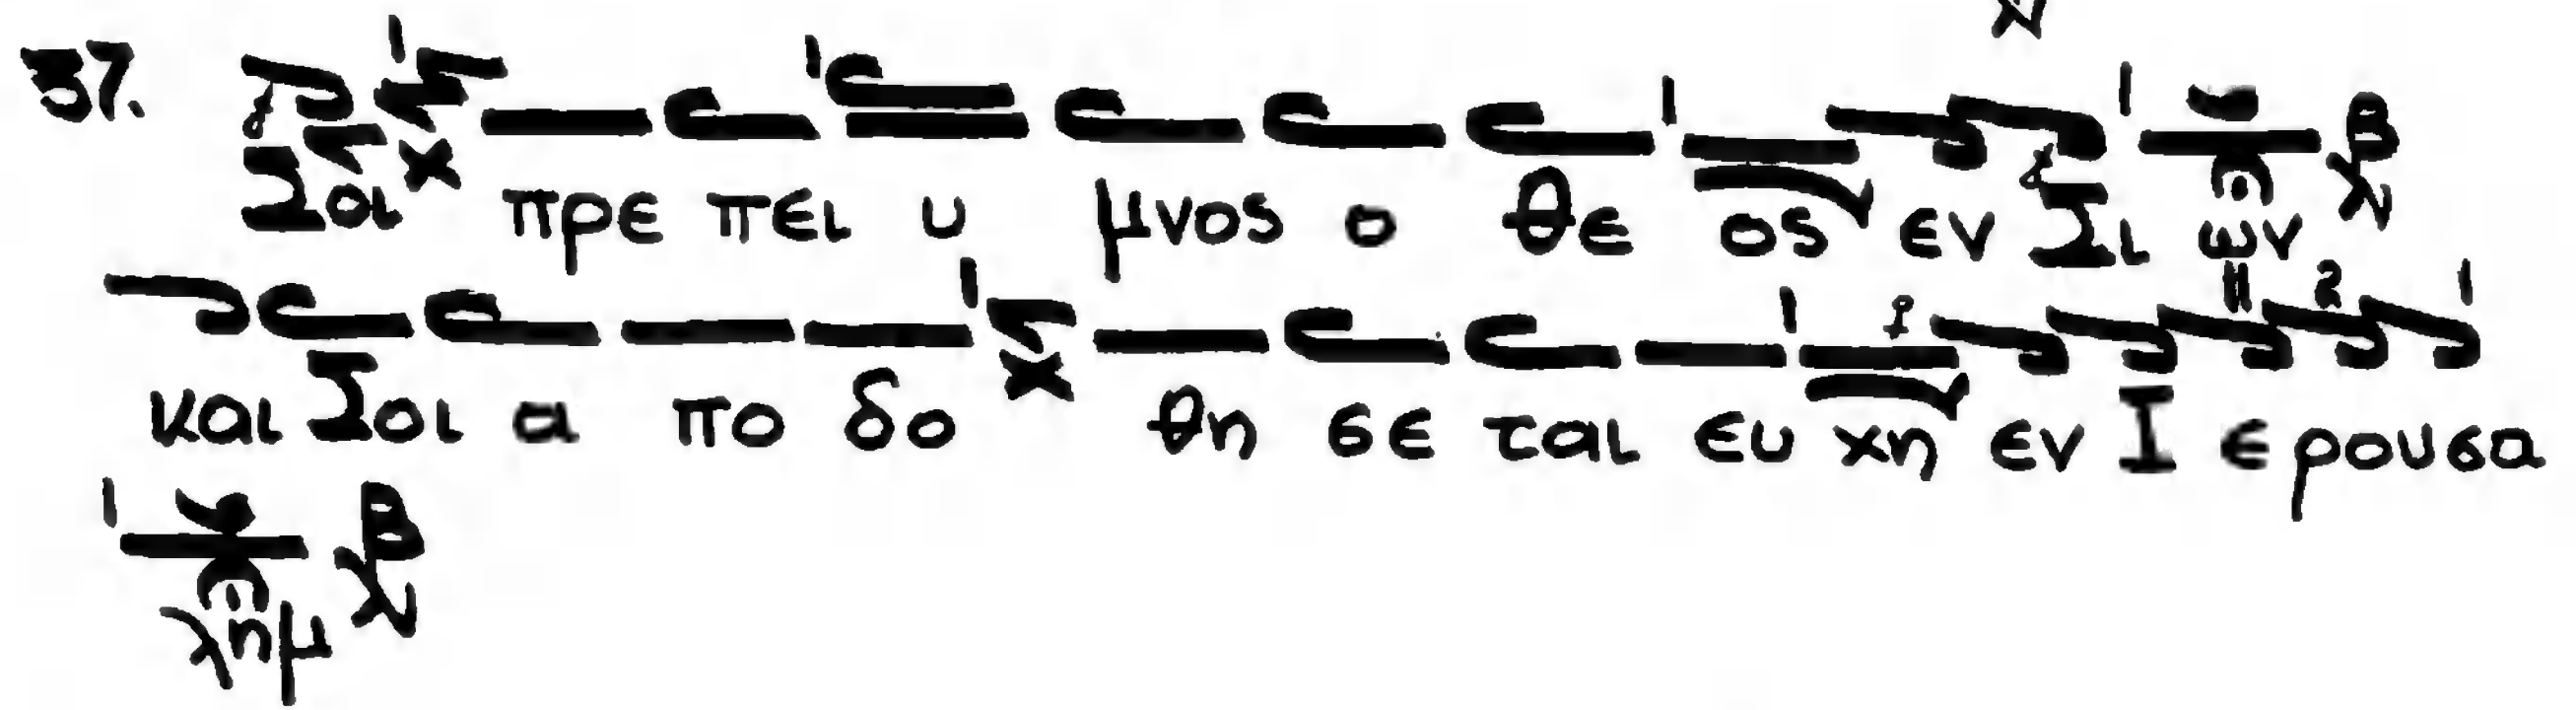 37. Σοι πρε πει υ μνος ο θε ος εν Σι ων
και Σοι α πο δο θη σε ται ευ χη εν Ι ε ρουσα
λημ